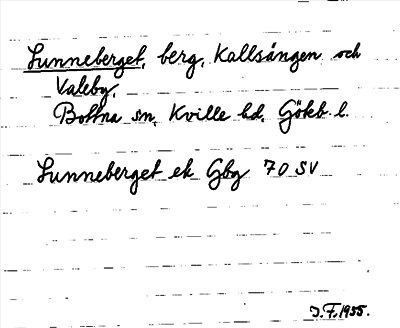 Sunneberget, berg, Kallsängen och
Valeby.
Bottna sn, Kville hd, Göteb. l.
Sunneberget ek Gbg 70 SV
J.F. 1955.